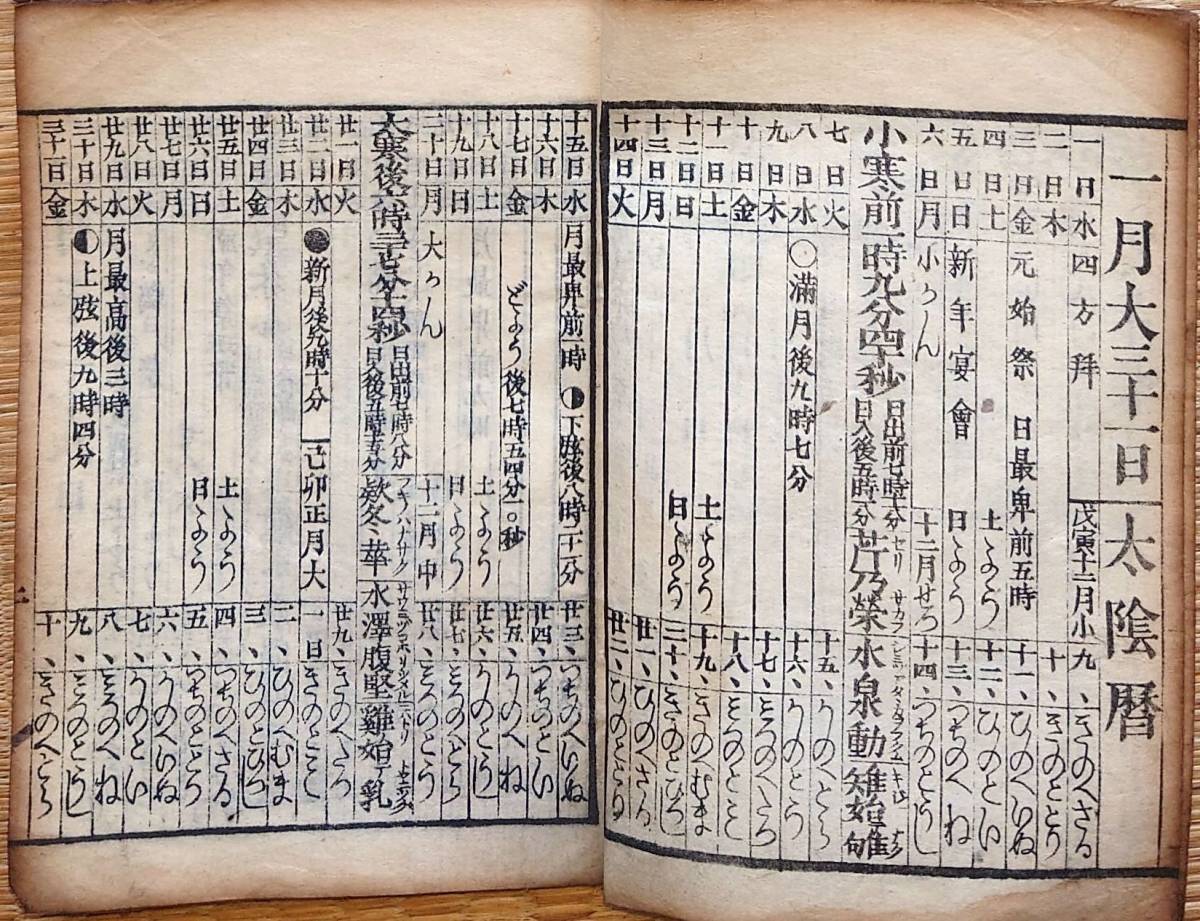 一月大三十一日 太陰暦
一日水 四方拜 戊寅十二月小 九、きのへさる
二日木 十、きのととり
三日金 元始祭 日最卑前五時 十一、ひのへいぬ
四日土 土えう 十二、ひのとい
五日日 新年宴會 日えう 十三、つちのへね
六日月 小かん 十二月せつ 十四、つちのとうし
小寒前一時九分四十秒 日出前七時十六分 日入後五時 芹乃榮 水泉動 雉始雊
七日火 十五、かのへとら
八日水 ○滿月後九時七分 十六、かのとう
九日木 十七、みつのへたつ
十日金 十八、みつのとみ
十一日土 土えう 十九、きのへむま
十二日日 日えう 二十、きのとひつし
十三日月 廿一、ひのへさる
十四日火 廿二、ひのととり
十五日水 月最卑前一時 ◑下弦後八時二十一分 廿三、つちのへいぬ
十六日木 廿四、つちのとい
十七日金 どよう後七時五四分一〇秒 廿五、かのへね
十八日土 土えう 廿六、かのとうし
十九日日 日えう 廿七、みつのへとら
二十日月 大かん 十二月中 廿八、みつのとう
大寒後六時 日出前七時八分 日入後五時 欵冬華 水澤腹堅 雞始乳
廿一日火 廿九、きのへたつ
廿二日水 ●新月後九時十分 己卯正月大 一日 きのとみ
廿三日木 二、ひのへむま
廿四日金 三、ひのとひつし
廿五日土 土えう 四、つちのへさる
廿六日日 日えう 五、つちのととり
廿七日月 六、かのへいぬ
廿八日火 七、かのとい
廿九日水 月最高後三時 八、みつのへね
三十日木 ◐上弦後九時四分 九、みつのとうし
三十一日金 十、きのへとら